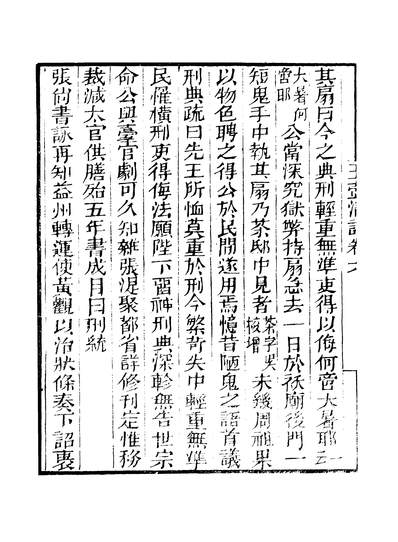 玉壺清話卷六
其扇曰今之典刑輕重無準吏得以侮何啻大暑耶一云
大暑何啻耶公當深究獄弊持扇急去一日於祆廟後門一
短鬼手中執其扇乃茶邸中見者茶字吳校增未幾周祖果
以物色聘之得公於民間遂用焉憶昔陋鬼之語首議
刑典疏曰先王所恤莫重於刑今繁苛失中輕重無準
民罹橫刑吏得侮法願陛下留神刑典深軫無告世宗
命公與臺官劇可久知雜張湜聚都省詳修刊定惟務
裁減太官供膳殆五年書成目曰刑統
張尙書詠再知益州轉運使黃觀以治狀條奏下詔褒